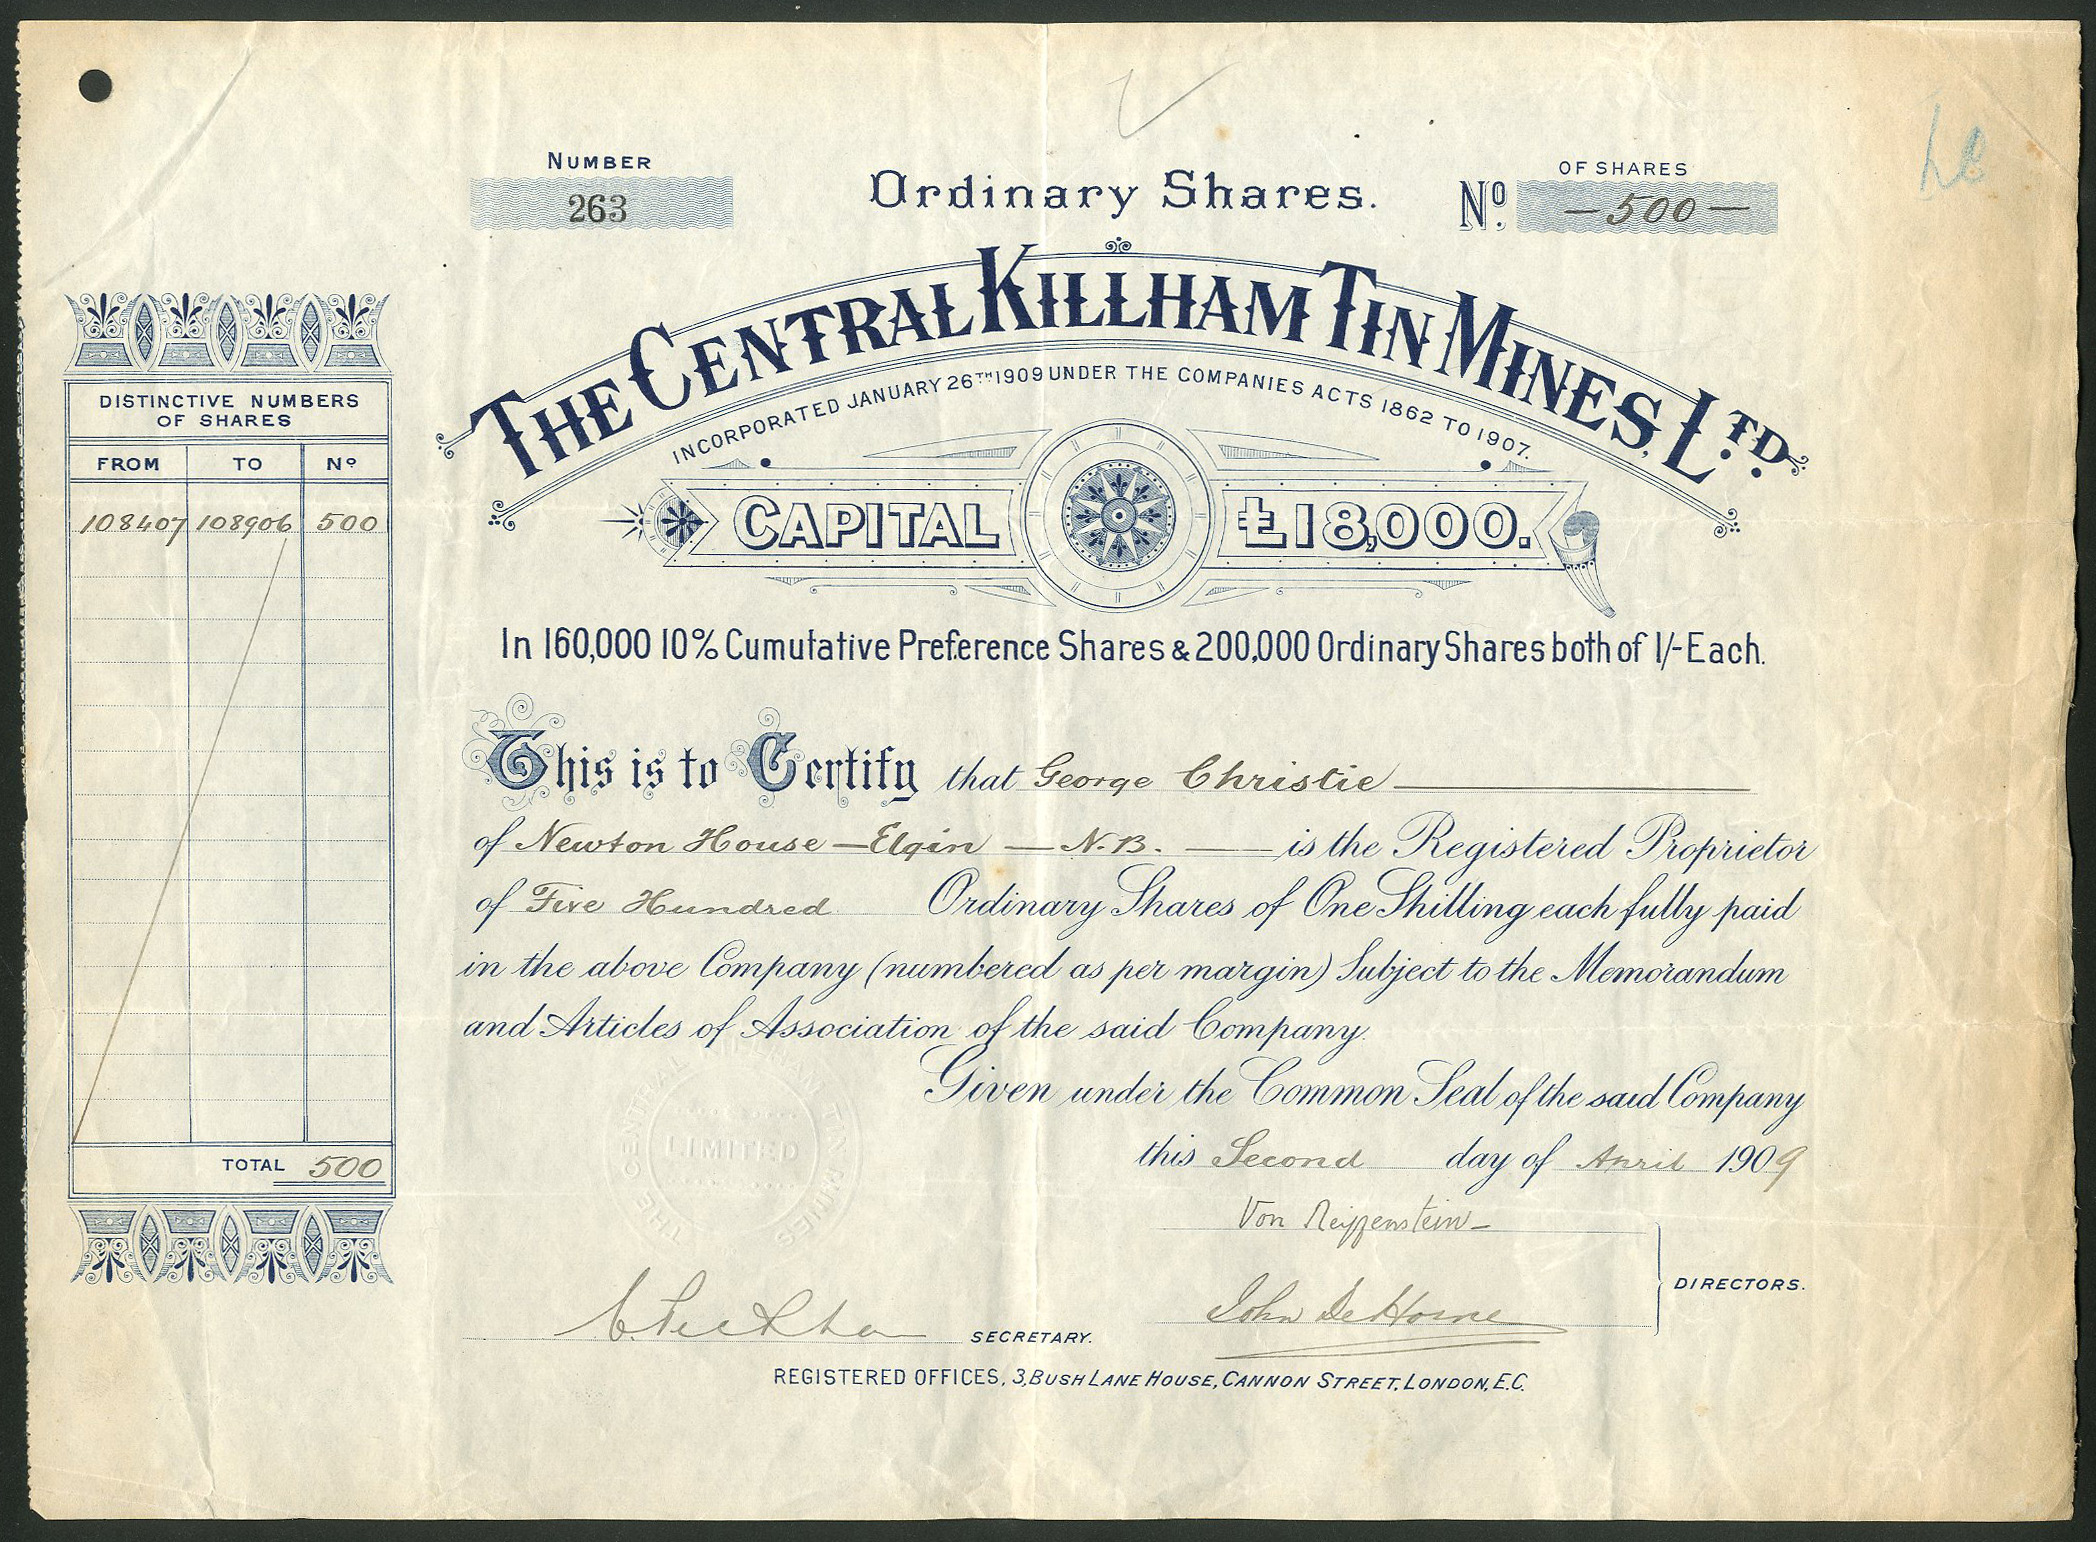 NUMBER
263
Ordinary Shares.
OF SHARES
No. —500—
THE CENTRAL KILLHAM TIN MINES, LTD.
INCORPORATED JANUARY 26TH 1909 UNDER THE COMPANIES ACTS 1862 TO 1907.
CAPITAL £18,000.
In 160,000 10% Cumulative Preference Shares & 200,000 Ordinary Shares both of 1/- Each.
DISTINCTIVE NUMBERS
OF SHARES
FROM TO No
108407 108906 500
TOTAL 500
This is to Certify that George Christie
of Newton House — Elgin — N.B. — is the Registered Proprietor
of Five Hundred Ordinary Shares of One Shilling each fully paid
in the above Company (numbered as per margin) Subject to the Memorandum
and Articles of Association of the said Company.
Given under the Common Seal of the said Company
this Second day of April 1909
THE CENTRAL KILLHAM TIN MINES
LIMITED
Von Reiffenstein
John De Horne
DIRECTORS.
SECRETARY.
REGISTERED OFFICES, 3, BUSH LANE HOUSE, CANNON STREET, LONDON, E.C.